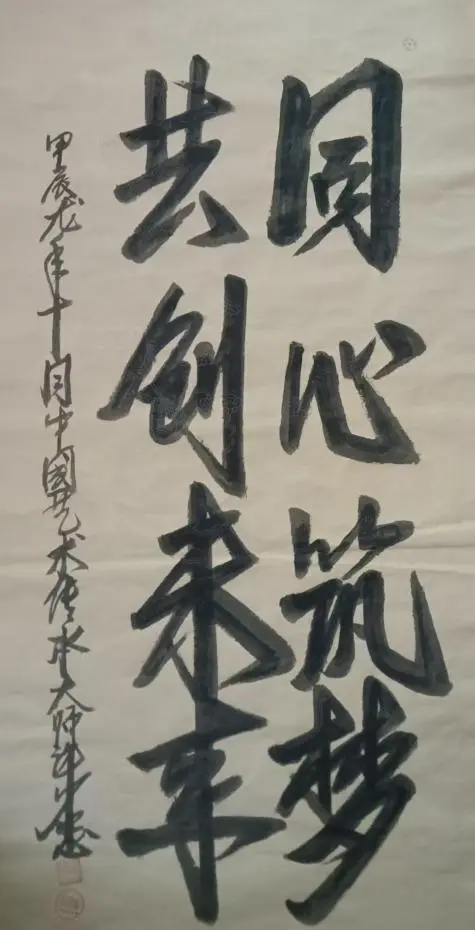 同心筑梦
共创未来
甲辰龙年十月中国艺术传承大师